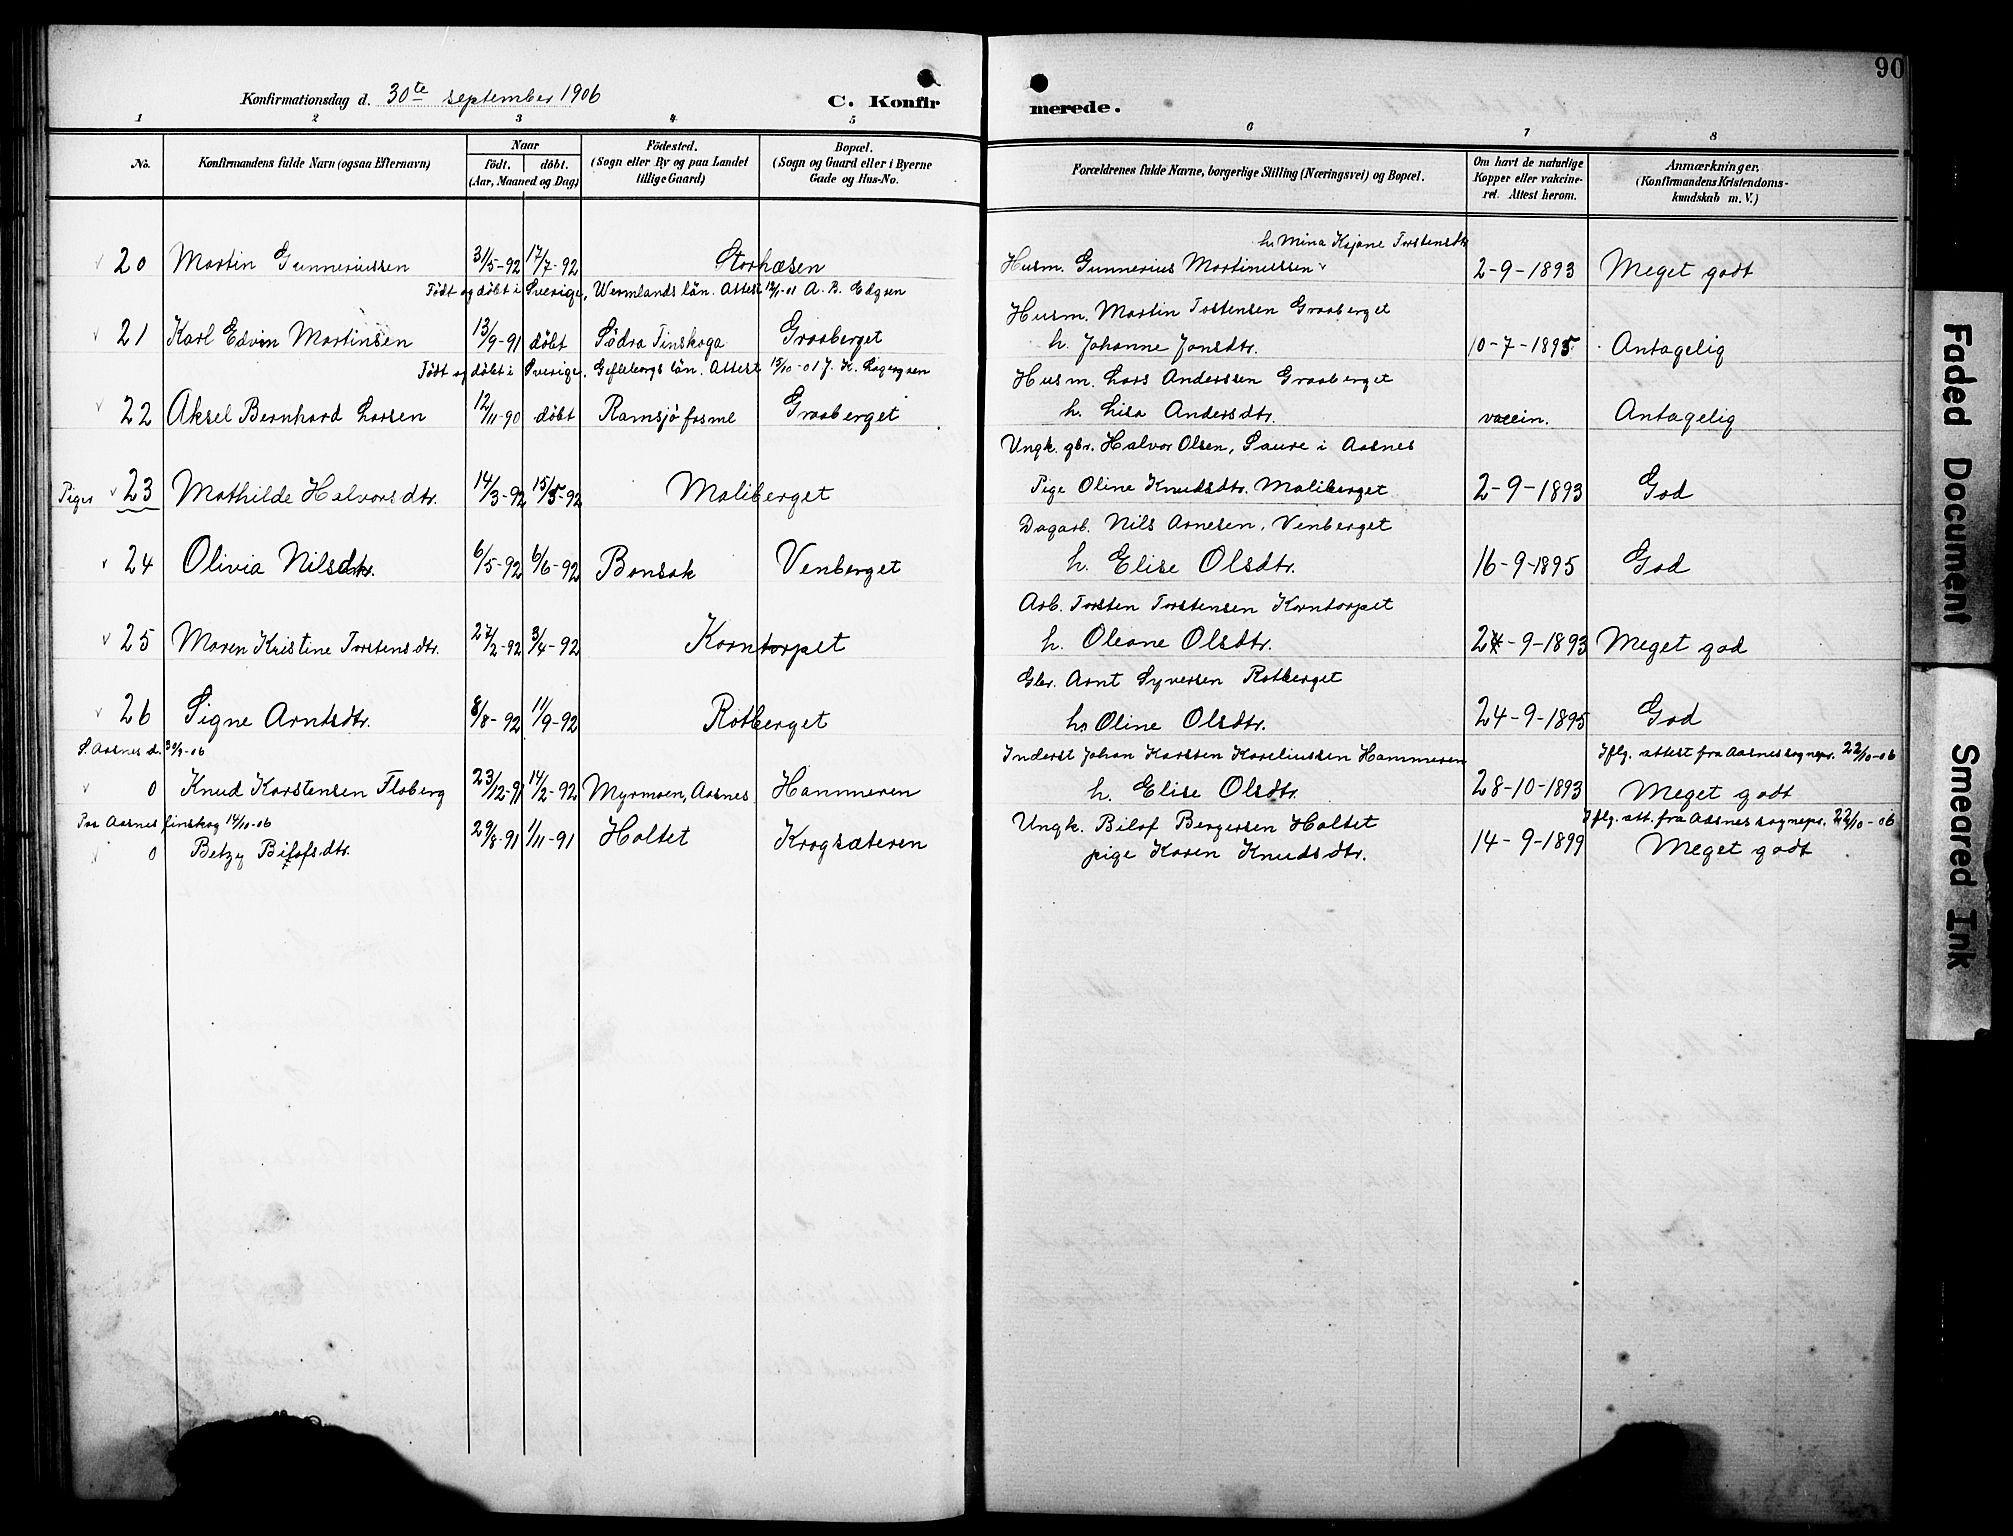 90
Konfirmationsdag d. 30te september 1906
C. Konfirmerede.
1 2 3 4 5 6 7 8
No.
Konfirmandens fulde Navn (ogsaa Efternavn)
Naar
födt. döbt.
(Aar, Maaned og Dag)
Födested.
(Sogn eller By og paa Landet
tillige Gaard)
Bopæl.
(Sogn og Gaard eller i Byerne
Gade og Hus-No.
Forældrenes fulde Navne, borgerlige Stilling (Næringsvei) og Bopæl.
Om havt de naturlige
Kopper eller vakcine-
ret. Attest herom.
Anmærkninger.
(Konfirmandens Kristendoms-
kundskab m. V.)
h. Mina Kajane Torstensdtr
20 Martin Gunneriussen 31/5-92 17/7-92 Storhæsen Husm. Gunnerius Martinussen 2-9-1893 Meget godt
Födt og döbt i Sverige, Wermlands län. Attest 12/1-01 A. B. Edgren
Husm. Martin Tostensen Graaberget
21 Karl Edvin Martinsen 13/9-91 döbt Södra Finskoga Graaberget h. Johanne Jonsdtr. 10-7-1895 Antagelig
Födt og döbt i Sverige, Gefleborgs län. Attest 15/10-01 J. K. Lagergren
Husm. Lars Anderssen Graaberget
22 Aksel Bernhard Larsen 12/11-90 döbt Ramsjö Graaberget h. Lisa Andersdtr. vaccin. Antagelig
Ungk. gbr. Halvor Olsen, Saure i Aasnes
Piger 23 Mathilde Halvorsdtr. 14/3-92 15/5-92 Maliberget Pige Oline Knudsdtr. Maliberget 2-9-1893 God
Dagarb. Nils Arnesen, Venberget
24 Olivia Nilsdtr. 6/5-92 6/6-92 Bonsak Venberget h. Elise Olsdtr. 16-9-1895 God
Arb. Torsten Torstensen Korntorpet
25 Maren Kristine Torstensdtr. 27/2-92 3/4-92 Korntorpet h. Oleane Olsdtr. 24-9-1893 Meget god
Gbr. Arnt Syversen Rotberget
26 Signe Arntsdtr. 8/8-92 11/9-92 Rotberget h. Oline Olsdtr. 24-9-1895 God
S. Aasnes d. 30/9-06 Inderst Johan Karsten Koreliussen Hammeren Iflg. attest fra Aasnes sognepr. 22/10-06
0 Knud Karstensen Floberg 23/12-91 14/2-92 Myrmoen, Aasnes Hammeren h. Elise Olsdtr. 28-10-1893 Meget godt
Paa Aasnes finskog 14/10-06 Ungk. Bilof Bergersen Holtet Iflg. att. fra Aasnes sognepr. 22/10-06
0 Betzy Bilofsdtr. 29/8-91 1/11-91 Holtet Krogsæteren pige Karen Knudsdtr. 14-9-1899 Meget godt
Faded Document
Smeared Ink